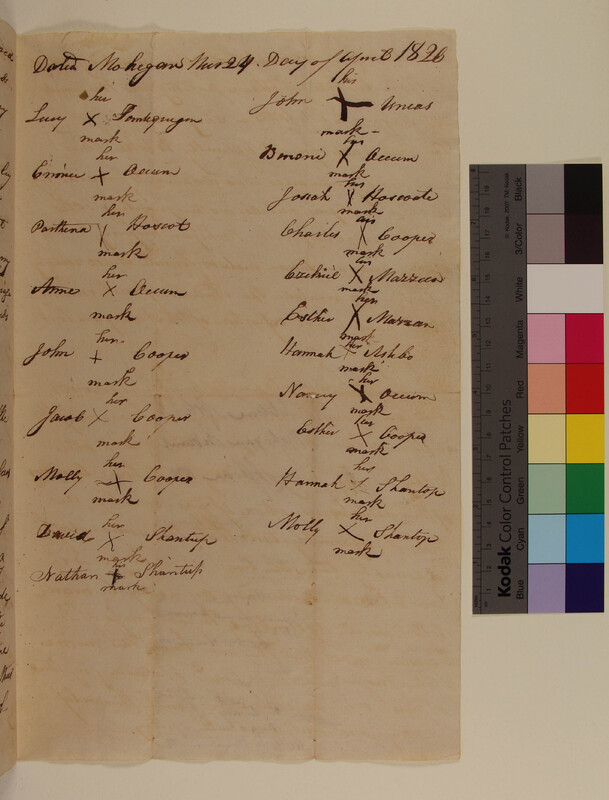 Dated Mohegan this 24. Day of April 1820
his
Lucy X Tomhquegon
mark
her
X Occum
mark
her
Parthena X Hoscot
mark
her
Anne X Occum
mark
her
John + Cooper
mark
her
Jacob X Cooper
mark
her
Molly X Cooper
mark
her
David X Shantup
mark
his
Nathan + Shantup
mark
his
John + Uncas
mark
his
Benoni X Occum
mark
his
Josiah X Hoscoate
mark
his
Charles X Cooper
mark
his
Ezekiel X Mazzeen
mark
her
Esther X Mazzan
mark
her
Hannah X Ashbo
mark
her
Nancy X Occom
mark
her
Esther X Cooper
mark
her
Hannah X Shantop
mark
her
Molly X Shantop
mark
Kodak Color Control Patches
© Kodak, 2007 TM: Kodak
Blue
Cyan
Green
Yellow
Red
Magenta
White
3/Color
Black